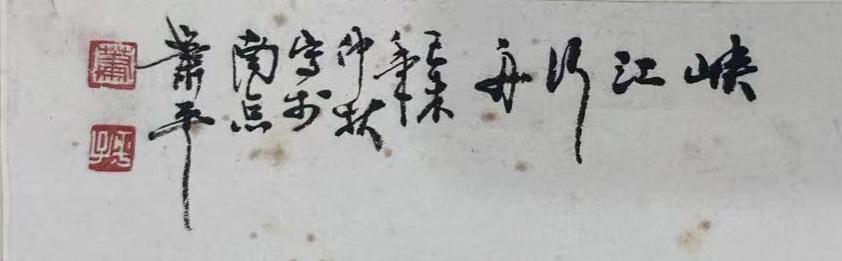 峡江行舟
己未
年
仲秋
写于
南京
萧平
萧